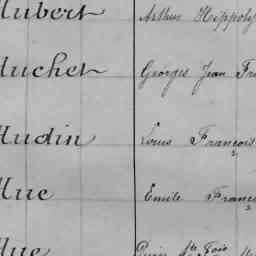 Hubert Arthur Hippoly
Huchet Georges Jean Fra
Hudin Louis François
Hue Emile Franço
Hue